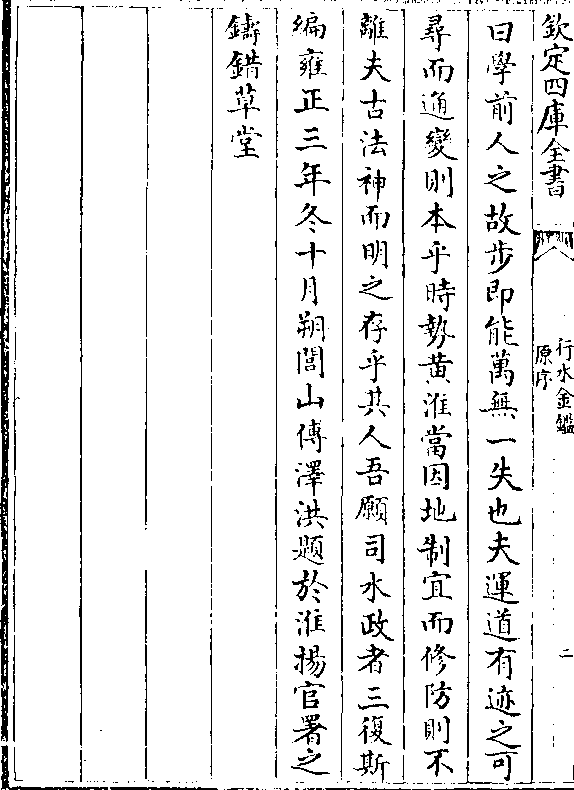 欽定四庫全書
行水金鑑
原序
二
曰學前人之故步即能萬無一失也夫運道有迹之可
尋而通變則本乎時勢黃淮當因地制宜而修防則不
離夫古法神而明之存乎其人吾願司水政者三復斯
編雍正三年冬十月朔閭山傅澤洪題於淮揚官署之
鑄錯草堂